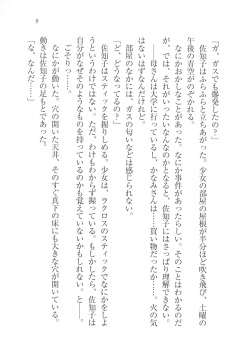 9
「ガ、ガスでも爆発したの？」
佐知子はふらふらと立ち上がる。少女の部屋の屋根が半分ほど吹き飛び、土曜の
午後の青空がのぞかれた。
なにかおかしなことがあった。なにか事件があったらしい。そのことはわかるのだ
が、では、いったいなんなのかとなると、佐知子にはさっぱり理解できない。
「か、母さんは大学に行っているし、かなみさんは……買い物だったか……火の気
はないはずなんだけれど」
部屋のなかには、ガスの匂いなどは感じられない。
「ど、どうなってるの？」
佐知子はスティックを握りしめる。少女は、ラクロスのスティックでなにかをしよ
うというわけではない。ただ、わけもわからず握っている。もしかしたら、佐知子に
は、自分がそのようなものを持っているのかも覚えていないかもしれない。と――。
ごそりっ……。
なにかが動いた。穴の開いた天井、そのすぐ真下の床にも大きな穴が開いている。
動きは佐知子の足もとであった。
「な、なんだ……」